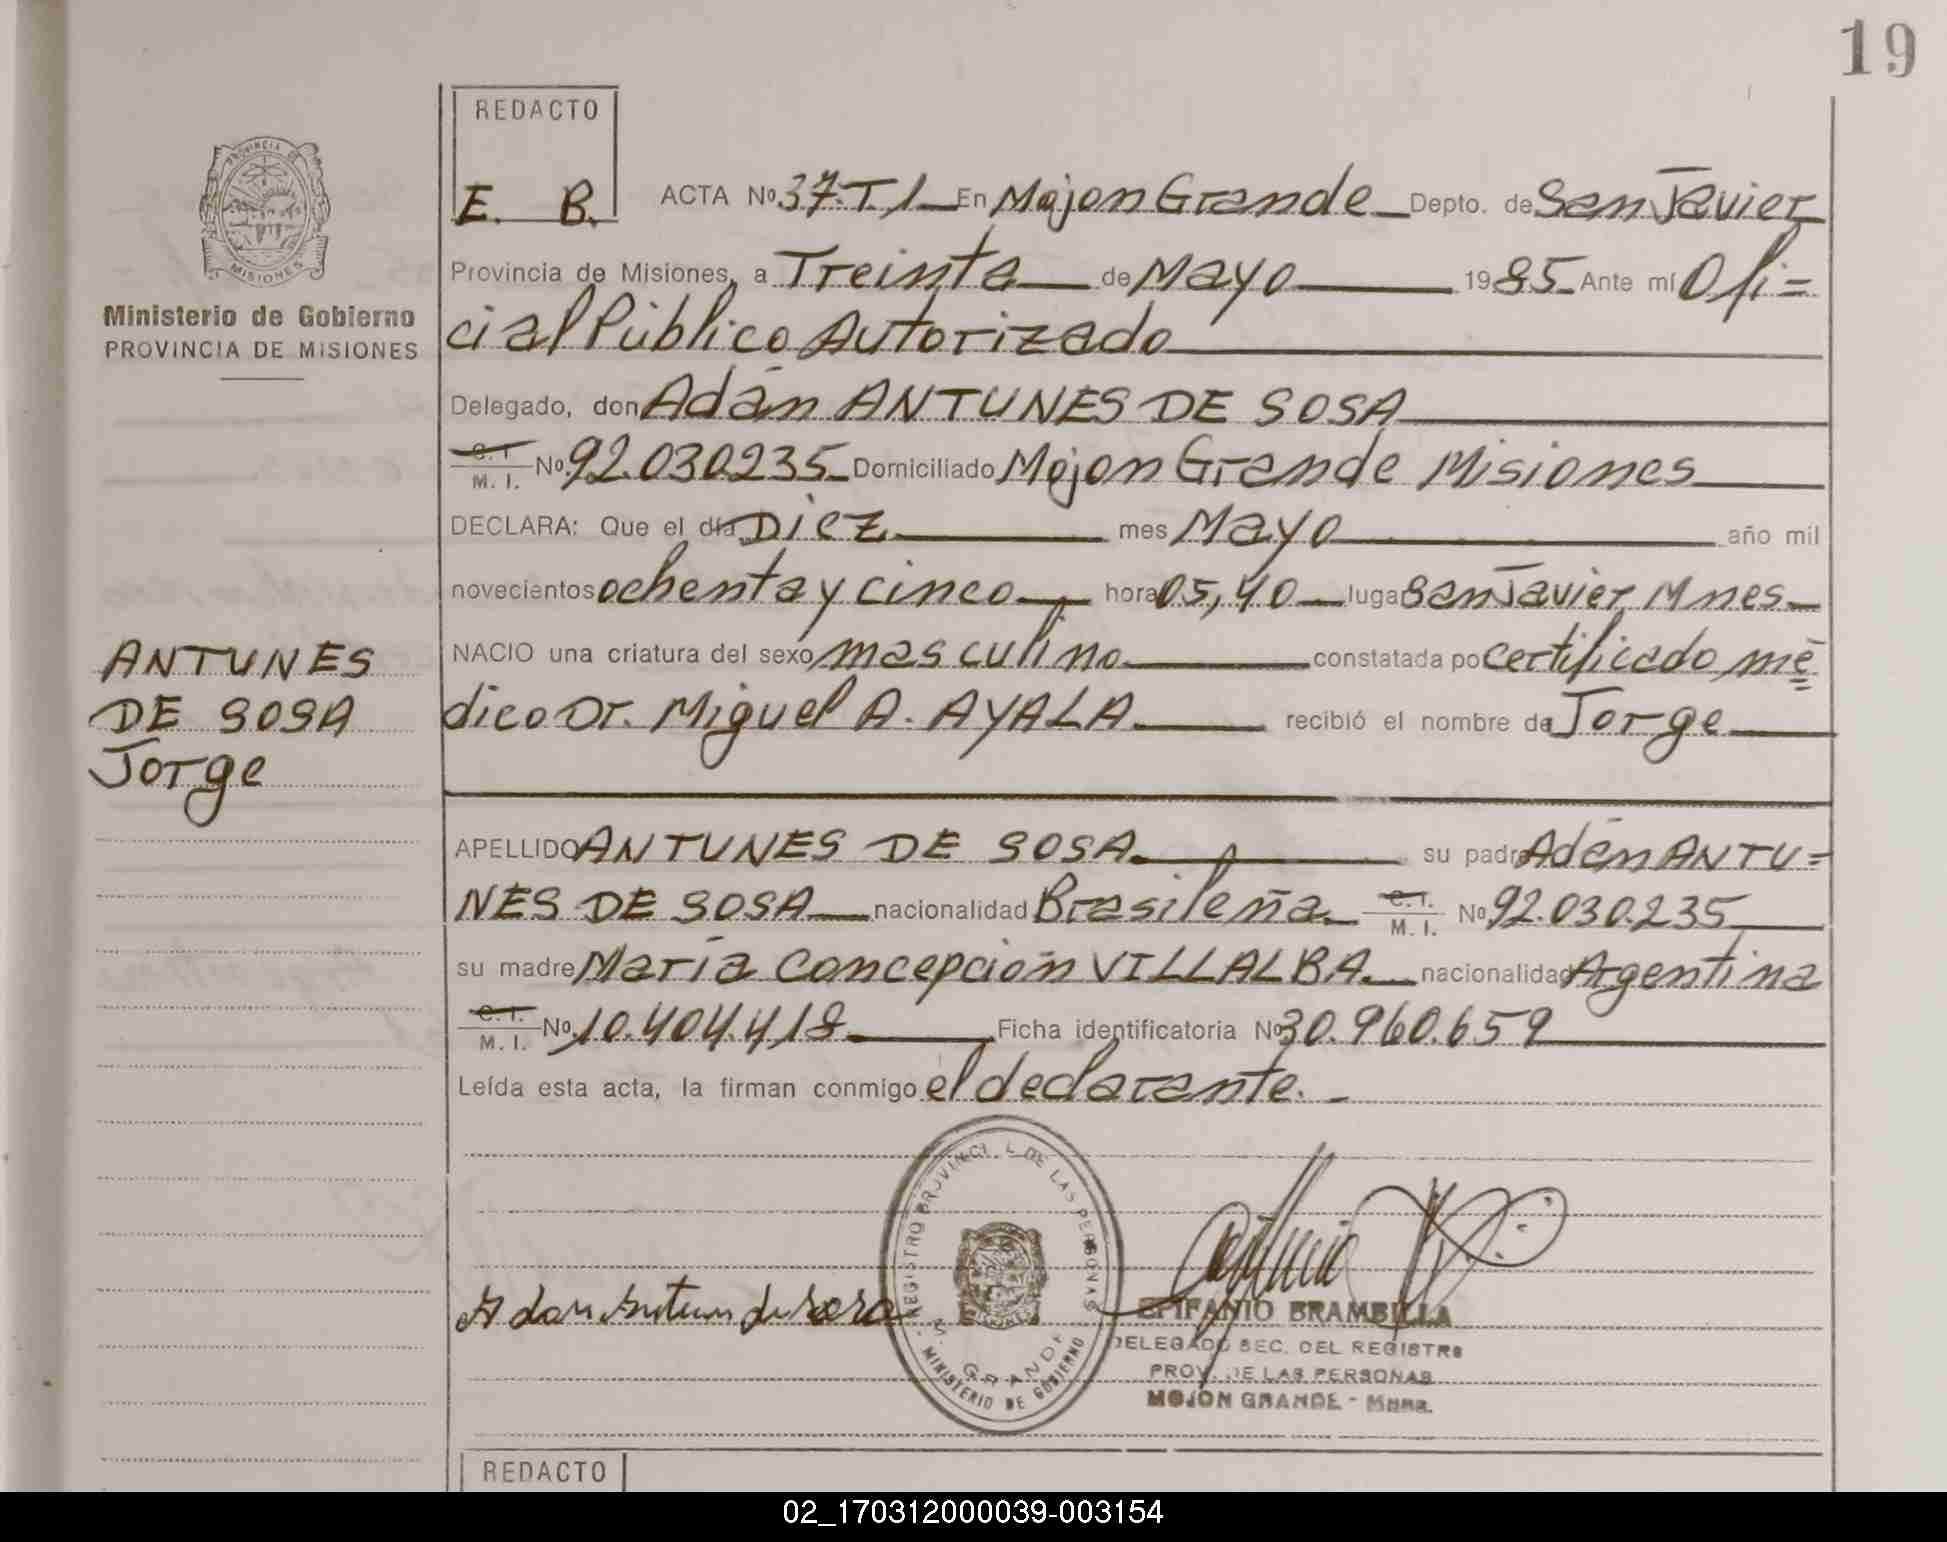 19
REDACTO
E. B.
ACTA Nº 37.T.1 En Mojon Grande Depto. de San Javier
Provincia de Misiones, a Treinta de Mayo 1985 Ante mí Ofi=
cial Público Autorizado
Delegado, don Adán ANTUNES DE SOSA
C.I.
M. I. Nº 92.030.235 Domiciliado Mojon Grande Misiones
DECLARA: Que el día Diez mes Mayo año mil
novecientos ochenta y cinco hora 05,40 lugar San Javier Mnes.
NACIO una criatura del sexo masculino constatada por certificado mé=
dico Dr. Miguel A. AYALA recibió el nombre de Jorge
APELLIDO ANTUNES DE SOSA su padre Adán ANTU=
NES DE SOSA nacionalidad Brasileña C.I.
M. I. Nº 92.030.235
su madre María Concepción VILLALBA nacionalidad Argentina
C.I.
M. I. Nº 10.404.418 Ficha identificatoria Nº 30.960.659
Leída esta acta, la firman conmigo el declarante.
PROVINCIA DE
MISIONES
Ministerio de Gobierno
PROVINCIA DE MISIONES
ANTUNES
DE SOSA
Jorge
REGISTRO PROVINCIAL DE LAS PERSONAS
M. GRANDE
MINISTERIO DE GOBIERNO
EPIFANIO BRAMBILLA
DELEGADO SEC. DEL REGISTRO
PROV. DE LAS PERSONAS
MOJÓN GRANDE - Mnes.
REDACTO
02_170312000039-003154